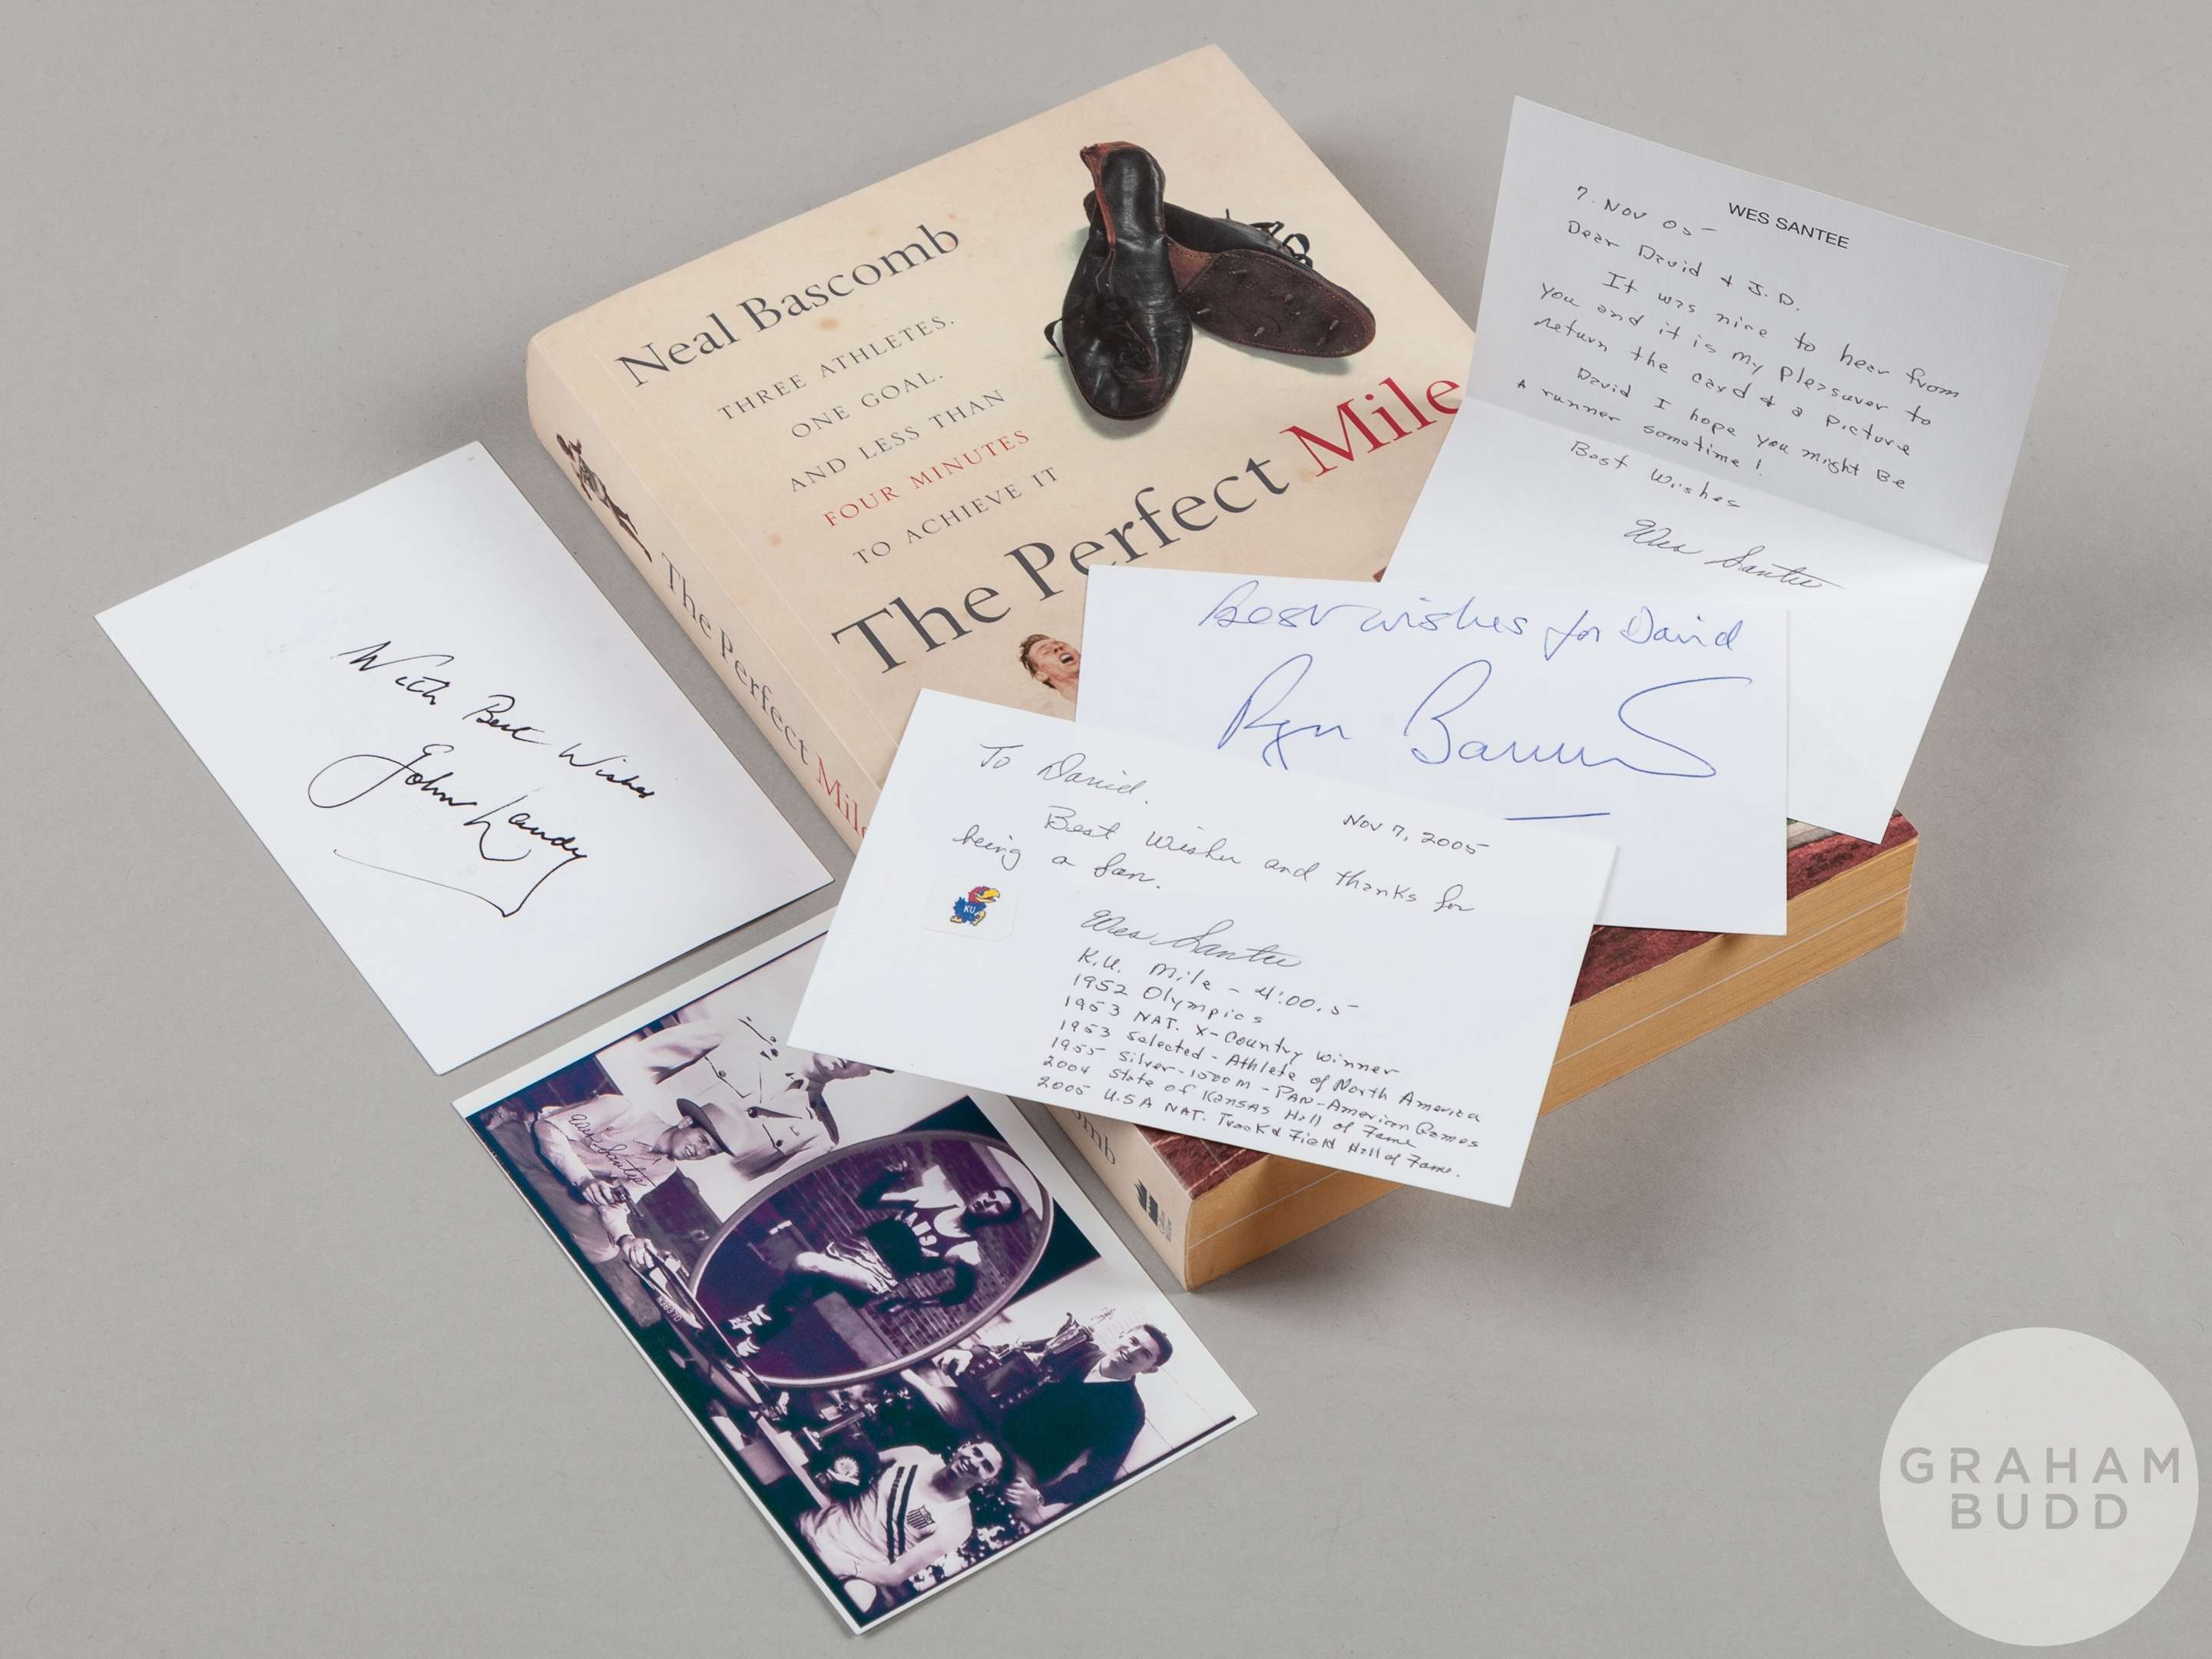 Neal Bascomb
THREE ATHLETES.
ONE GOAL.
AND LESS THAN
FOUR MINUTES
TO ACHIEVE IT
The Perfect Mile
The Perfect Mile
omb
WES SANTEE
7 Nov 05
Dear David & J.D.
It was nice to hear from
you and it is my pleasuver to
return the card & a picture
David I hope you might Be
A runner sometime!
Best Wishes
Wes Santee
Best wishes for David
Roger Bannister
With Best Wishes
John Landy
To David.
Nov 7, 2005
Best Wishes and thanks for
being a fan.
KU
Wes Santee
K.U. Mile - 4:00.5
1952 Olympics
1953 NAT. X-Country Winner
1953 Selected - Athlete of North America
1955 Silver-1500m - PAN-American Games
2004 State of Kansas Hall of Fame
2005 U.S.A NAT. Track & Field Hall of Fame.
Wes Santee
GRAHAM
BUDD